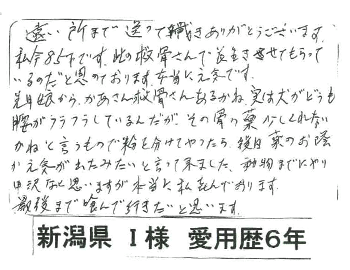 遠い所まで送って頂きありがとうございます。
私今85才です。此の救骨さんで長生きさせてもらって
いるのだと思っております。本当に元気です。
先日娘から、かあさん救骨さんあるかね、実は犬がどうも
腰がフラフラしているんだが、その骨の薬少しくれない
かねと言うもので粉を分けてやったら、後日薬のお陰
か元気が出たみたいと言って来ました。動物までにやり
申訳なく思いますが本当に私喜んでおります。
最後まで喰んで行きたいと思います。
新潟県 I様 愛用歴6年